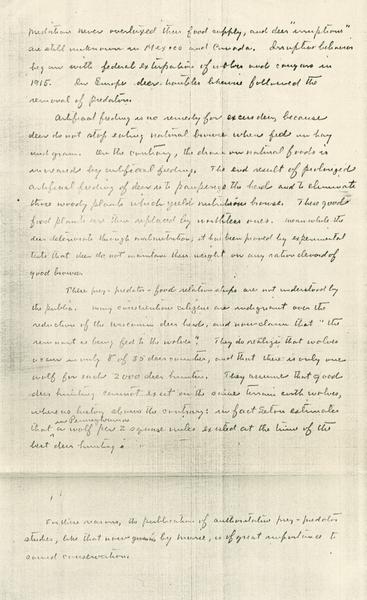 predators never overtaxed their food supply, and deer "irruptions"
are still unknown in Mexico and Canada. Irruptive behavior
began with federal extirpation of wolves and cougars in
1915. In Europe deer troubles likewise followed the
removal of predators.
Artificial feeding is no remedy for excess deer, because
deer do not stop eating natural browse when fed on hay
and grain. On the contrary, the drain on natural foods is
increased by artificial feeding. The end result of prolonged
artificial feeding of deer is to pauperize the herds and to eliminate
those woody plants which yield nutritious browse. These good
food plants are then replaced by worthless ones. Meanwhile the
deer deteriorate through malnutrition; it has been proved by experimental
tests that deer do not maintain their weight on any ration devoid of
good browse.
These prey-predator-food relationships are not understood by
the public. Many conservation citizens are indignant over the
reduction of the Wisconsin deer herd, and now claim that "the
remnant is being fed to the wolves". They do not realize that wolves
occur in only 8 of 35 deer counties, and that there is only one
wolf for each 2000 deer hunters. They assume that good
deer hunting cannot exist on the same terrain with wolves,
whereas history shows the contrary: in fact Seton estimates
in Pennsylvania
that a wolf per 2 square miles existed at the time of the
best deer hunting.
For these reasons, the publication of authoritative prey-predator
studies, like that now given by, is of great importance to
sound conservation.